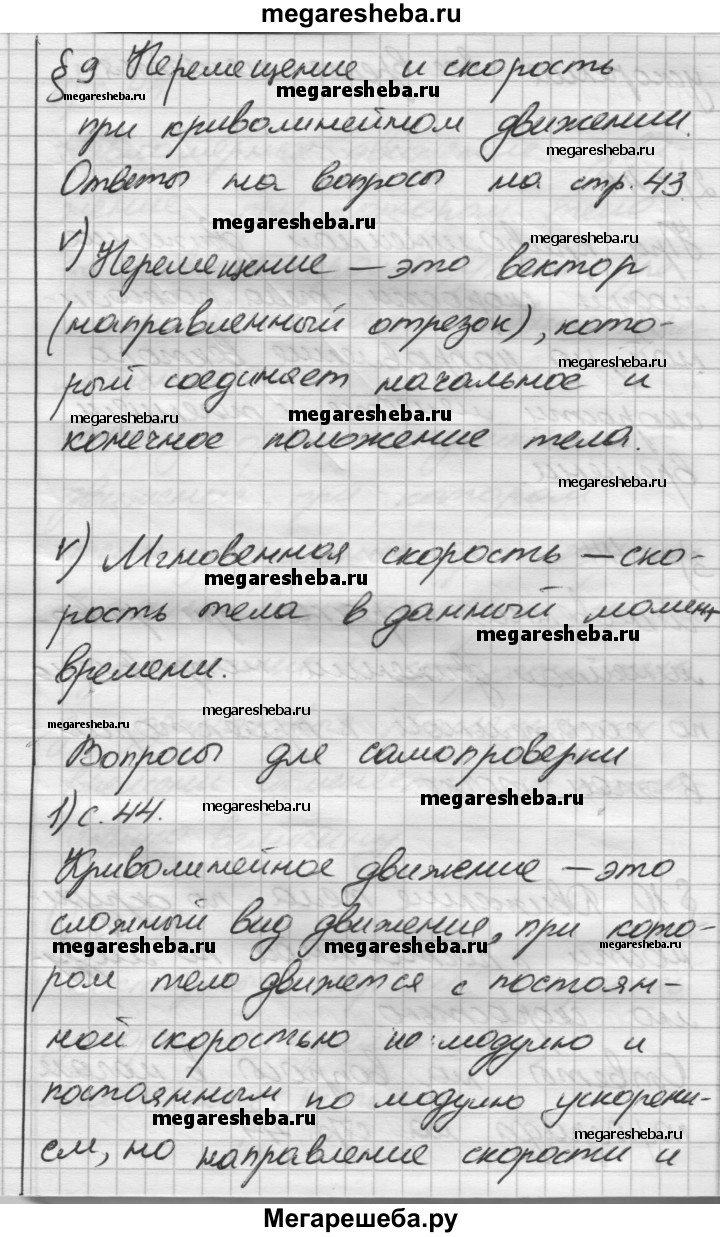 megaresheba.ru
§ 9 Перемещение и скорость
megaresheba.ru megaresheba.ru
при криволинейном движении.
megaresheba.ru
Ответы на вопросы на стр. 43.
megaresheba.ru
megaresheba.ru
v) Перемещение – это вектор
(направленный отрезок), кото-
megaresheba.ru
рый соединяет начальное и
megaresheba.ru megaresheba.ru
конечное положение тела.
megaresheba.ru
v) Мгновенная скорость – ско-
megaresheba.ru megaresheba.ru
рость тела в данный момент
megaresheba.ru
времени.
megaresheba.ru megaresheba.ru
Вопросы для самопроверки
megaresheba.ru megaresheba.ru
1) с. 44.
Криволинейное движение – это
сложный вид движения, при кото-
megaresheba.ru megaresheba.ru megaresheba.ru
ром тело движется с постоян-
ной скоростью по модулю и
постоянным по модулю ускорени-
megaresheba.ru megaresheba.ru
ем, но направление скорости и
Мегарешеба.ру